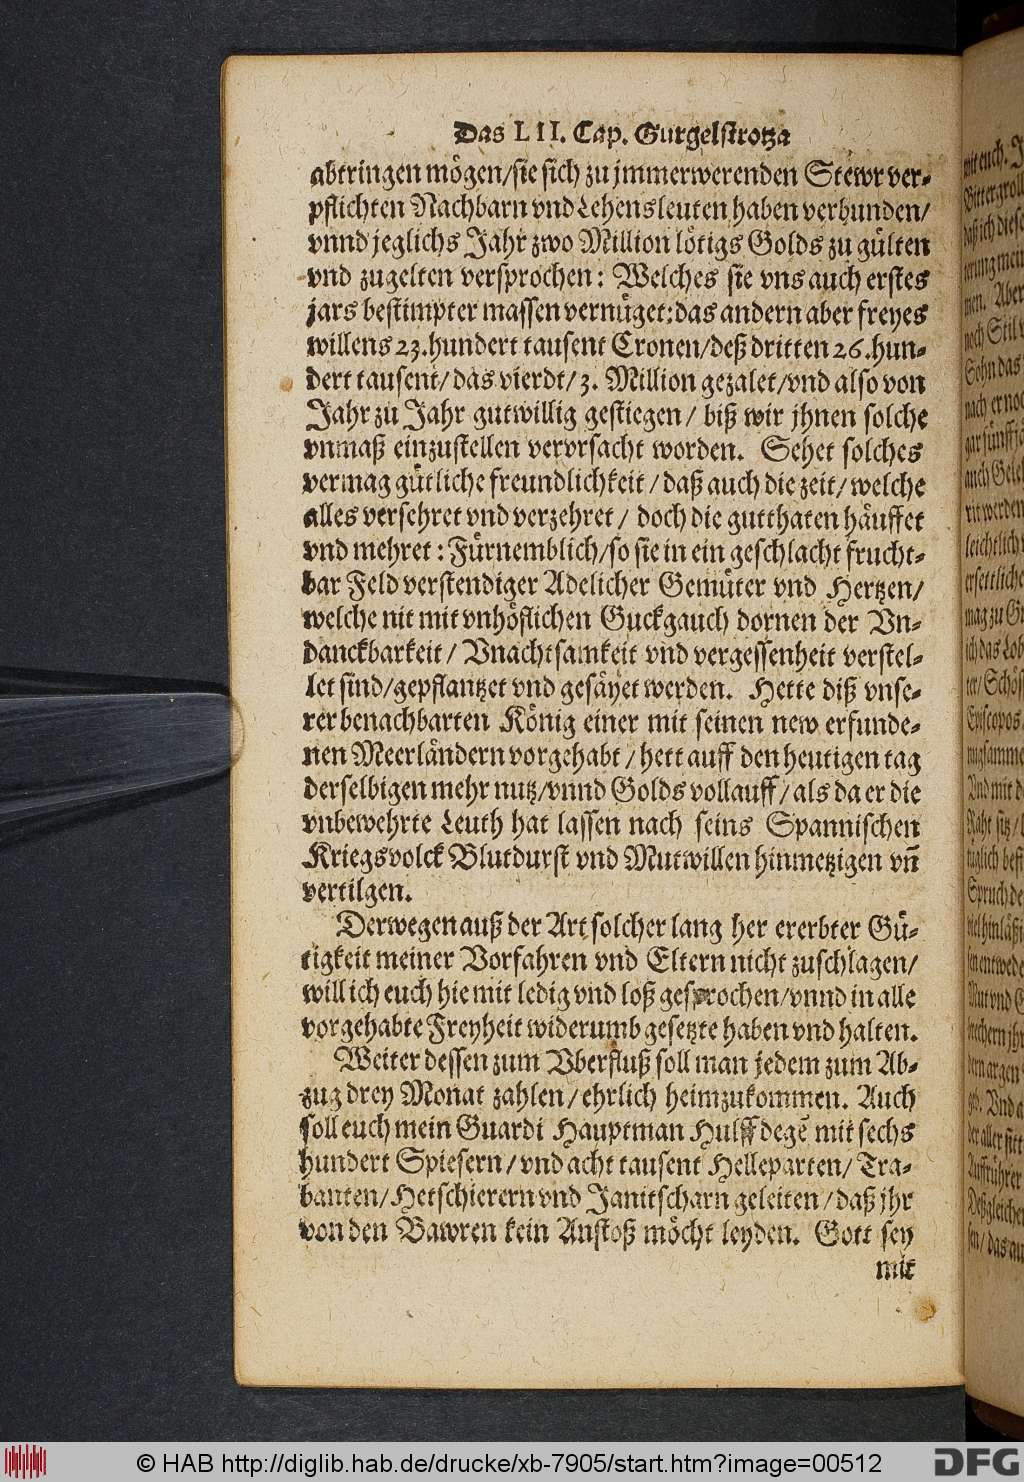 Das LII. Cap. Gurgelstrotza
abtringen mögen/sie sich zu jmmerwerenden Stewr ver-
pflichten Nachbarn vnd Lehensleuten haben verbunden/
vnnd jeglichs Jahr zwo Million lötigs Golds zu gülten
vnd zugelten versprochen: Welches sie vns auch erstes
jars bestimpter massen vernüget: das andern aber freyes
willens 23. hundert tausent Cronen/deß dritten 26. hun-
dert tausent/ das vierdt/ 3. Million gezalet/vnd also von
Jahr zu Jahr gutwillig gestiegen/ biß wir jhnen solche
vnmaß einzustellen vervrsacht worden. Sehet solches
vermag gütliche freundlichkeit/ daß auch die zeit/ welche
alles versehret vnd verzehret/ doch die gutthaten häuffet
vnd mehret: Fürnemblich/so sie in ein geschlacht frucht-
bar Feld verstendiger Adelicher Gemüter vnd Hertzen/
welche nit mit vnhöflichen Guckgauch dornen der Vn-
danckbarkeit/ Vnachtsamkeit vnd vergessenheit verstel-
let sind/gepflantzet vnd gesäyet werden. Hette diß vnse-
rer benachbarten König einer mit seinen new erfunde-
nen Meerländern vorgehabt/ hett auff den heutigen tag
derselbigen mehr nutz/vnnd Golds vollauff/ als da er die
vnbewehrte Leuth hat lassen nach seins Spannischen
Kriegsvolck Blutdurst vnd Mutwillen hinmetzigen vñ
vertilgen.
Derwegen auß der Art solcher lang her ererbter Gü-
tigkeit meiner Vorfahren vnd Eltern nicht zuschlagen/
will ich euch hie mit ledig vnd loß gesprochen/vnnd in alle
vorgehabte Freyheit widerumb gesetzte haben vnd halten.
Weiter dessen zum Vberfluß soll man jedem zum Ab-
zug drey Monat zahlen/ ehrlich heimzukommen. Auch
soll euch mein Guardi Hauptman Hulff degē mit sechs
hundert Spiesern/ vnd acht tausent Helleparten/ Tra-
banten/ Hetschierern vnd Janitscharn geleiten/ daß jhr
von den Bawren kein Anstoß möcht leyden. Gott sey
mit
© HAB http://diglib.hab.de/drucke/xb-7905/start.htm?image=00512
DFG